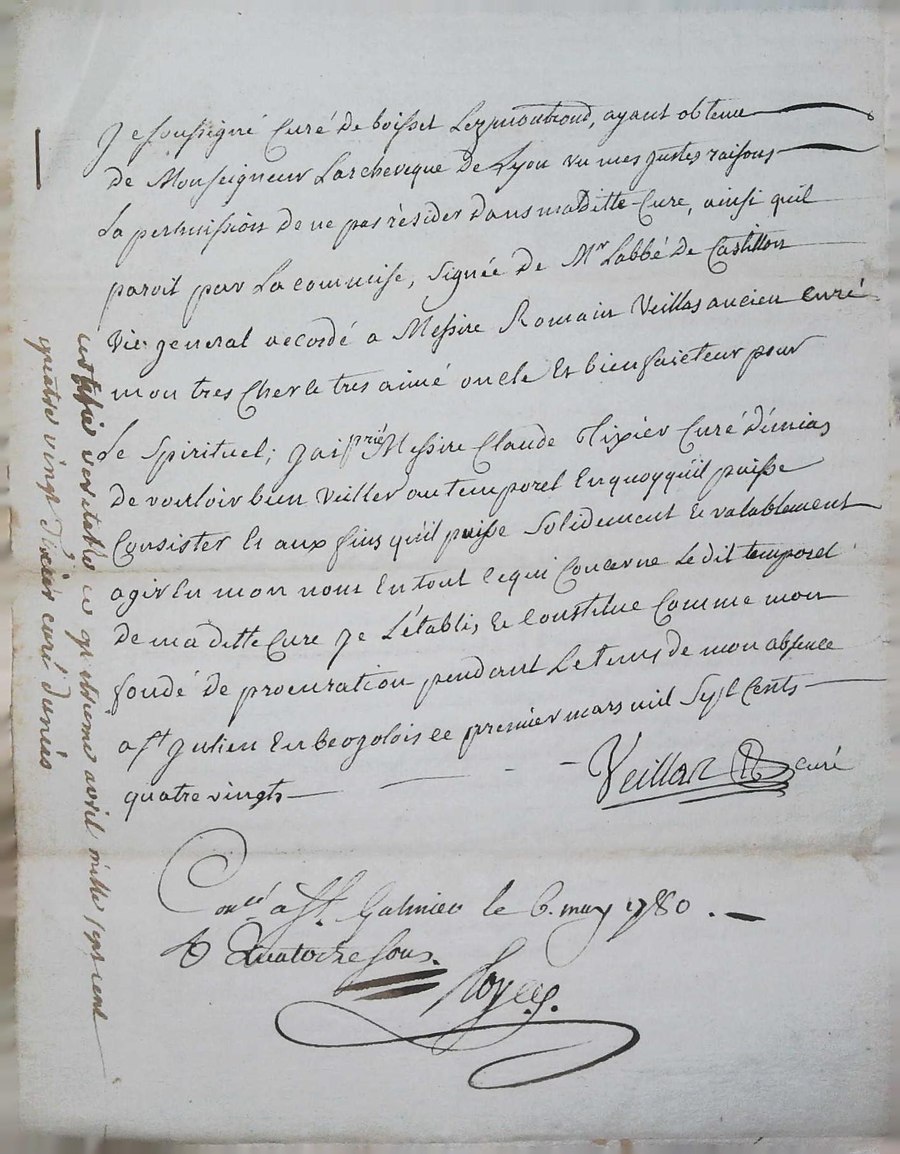 Je soussigné Curé de boisset Lezmontrond, ayant obtenu
de Monseigneur Larcheveque de Lyon vu mes justes raisons
La permission de ne pas résider dans maditte Cure, ainsi quil
paroit par La commise, signée de Mr Labbé de Castillon
Vic. general accordé a Messire Romain Veillas ancien curé
mon tres Cher et tres aimé oncle Et bienfaicteur pour
Le Spirituel; jai prié Messire Claude Tixier Curé d'unias
de vouloir bien Veiller au temporel En quoy quil puisse
Consister Et aux fins qu'il puisse Solidement Et valablement
agir En mon nom En tout ce qui Concerne Le dit temporel
de maditte Cure Je L'établis Et Constitue Comme mon
fondé de procuration pendant Le tems de mon absence
a St Julien En beogolois ce premier mars mil Sept Cents
quatre vingts
Veillas curé
Con.lé a St. Galmier le 6. may 1780.
R Quatorze sous.
certifié veritable ce quatrieme avril mille sept cent
quatre vingt Tixier curé dunias